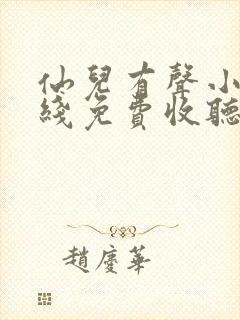 仙兒有聲小
綫免費收聽
趙慶華